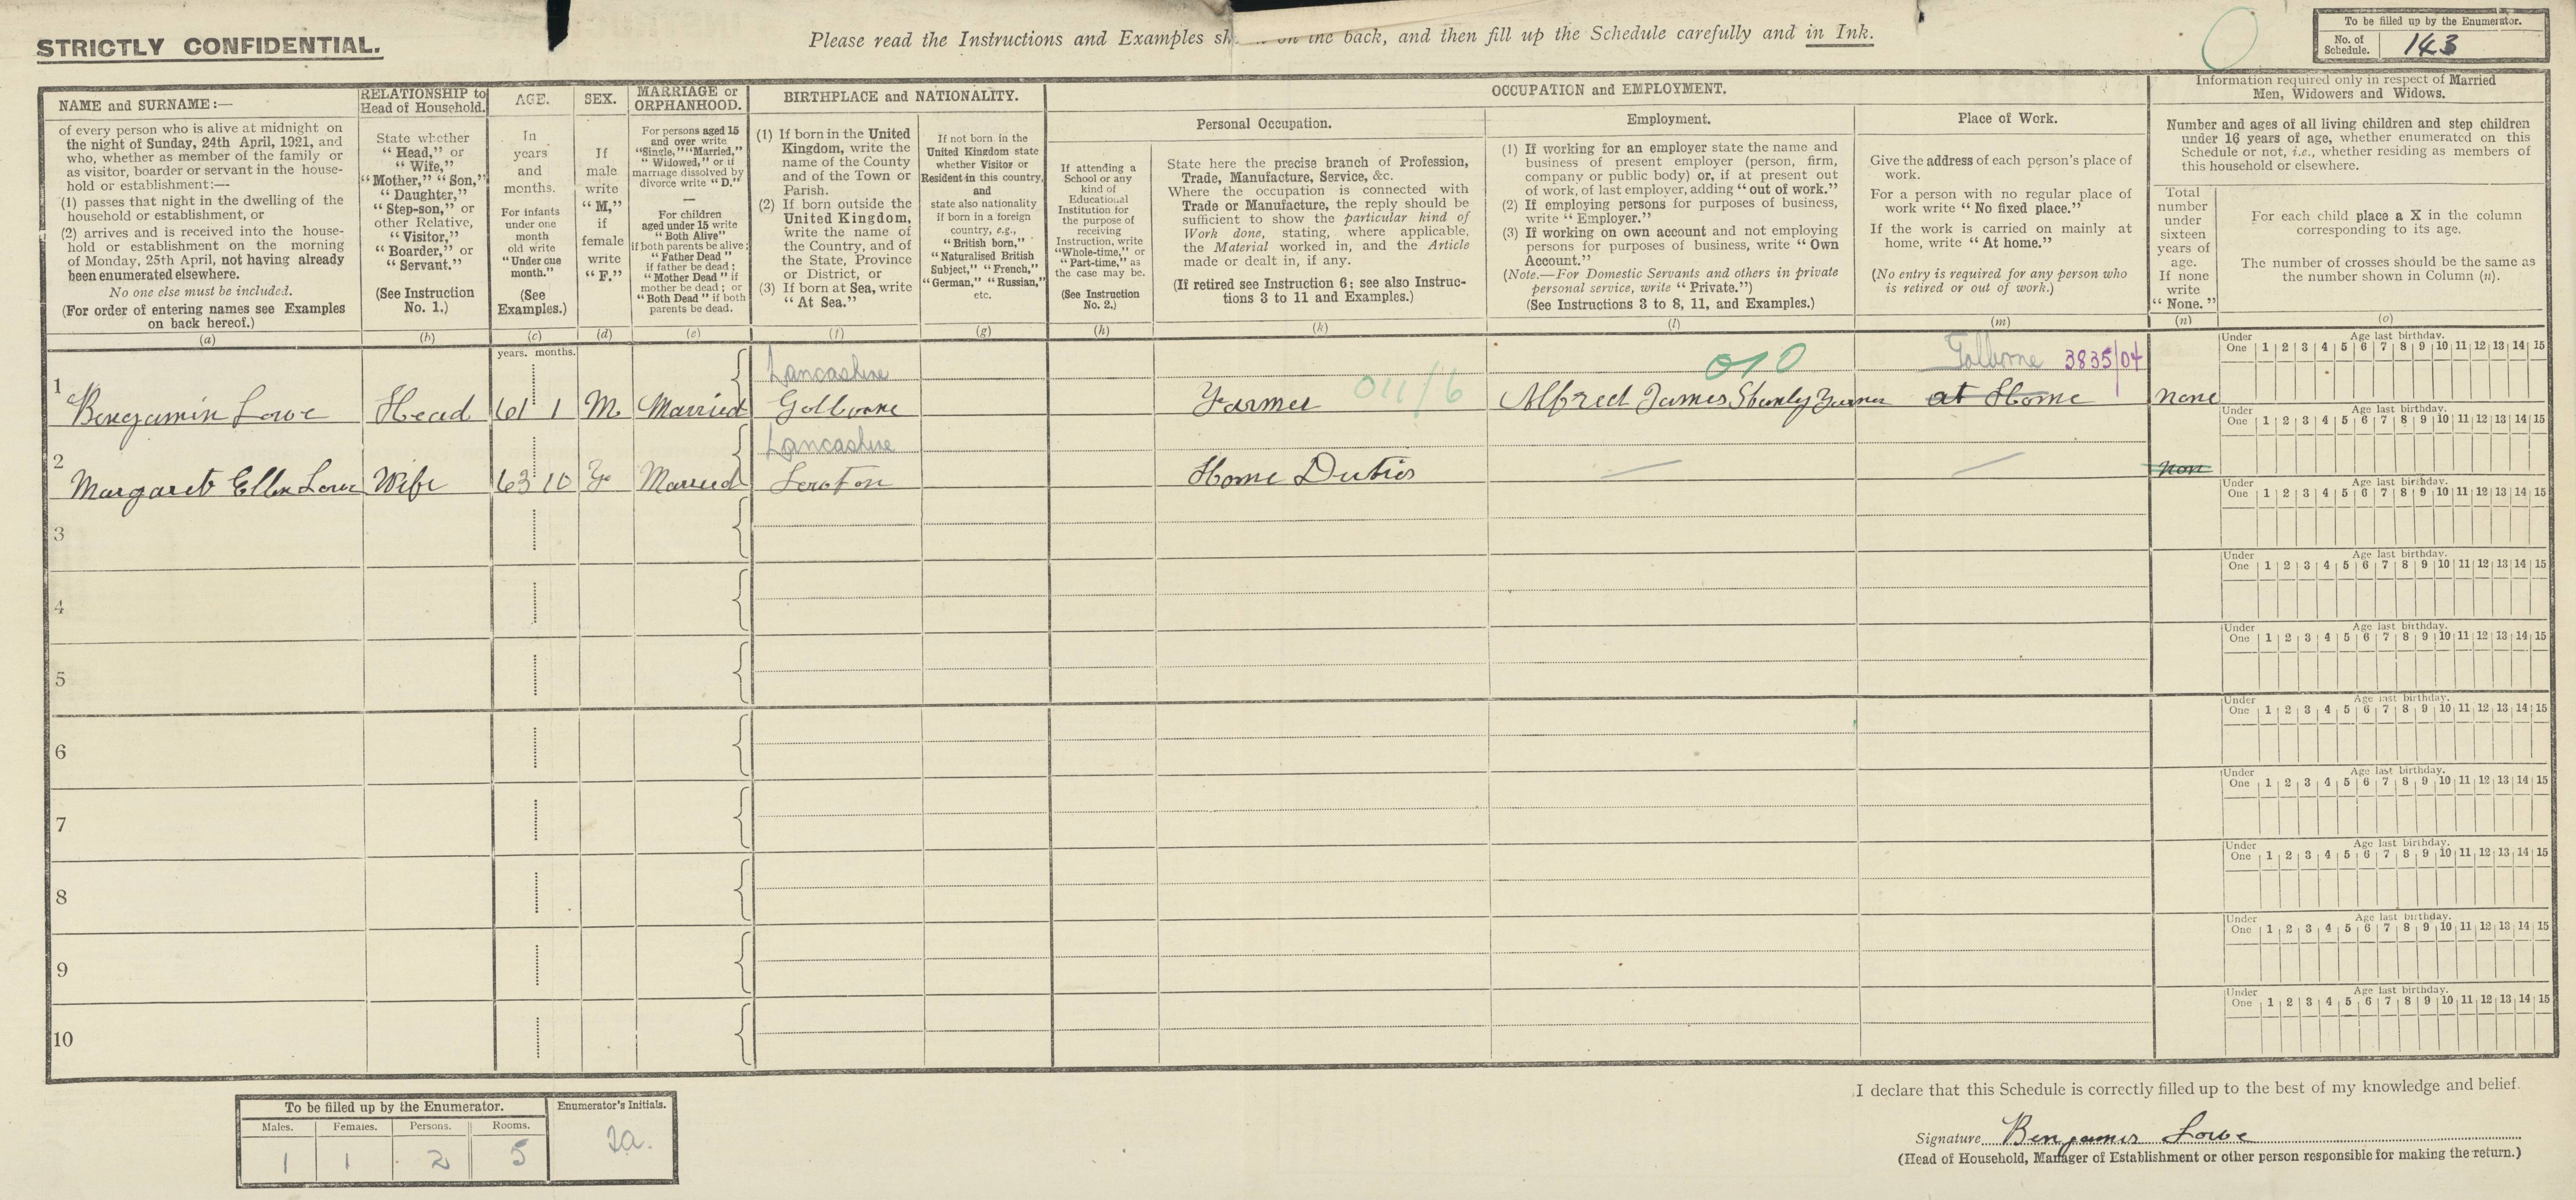 STRICTLY CONFIDENTIAL.
Please read the Instructions and Examples on the back, and then fill up the Schedule carefully and in Ink.
To be filled up by the Enumerator.
No. of Schedule. 143
NAME and SURNAME:—
of every person who is alive at midnight on
the night of Sunday, 24th April, 1921, and
who, whether as member of the family or
as visitor, boarder or servant in the house-
hold or establishment:—
(1) passes that night in the dwelling of the
household or establishment, or
(2) arrives and is received into the house-
hold or establishment on the morning
of Monday, 25th April, not having already
been enumerated elsewhere.
No one else must be included.
(For order of entering names see Examples
on back hereof.)
(a)
RELATIONSHIP to
Head of Household.
State whether
"Head," or
"Wife,"
"Mother," "Son,"
"Daughter,"
"Step-son," or
other Relative,
"Visitor,"
"Boarder," or
"Servant."
(See Instruction
No. 1.)
(b)
AGE.
In
years
and
months.
For infants
under one
month
old write
"Under one
month."
(See
Examples.)
(c)
SEX.
If
male
write
"M,"
if
female
write
"F."
(d)
MARRIAGE or
ORPHANHOOD.
For persons aged 15
and over write
"Single," "Married,"
"Widowed," or if
marriage dissolved by
divorce write "D."
—
For children
aged under 15 write
"Both Alive"
if both parents be alive;
"Father Dead"
if father be dead;
"Mother Dead" if
mother be dead; or
"Both Dead" if both
parents be dead.
(e)
BIRTHPLACE and NATIONALITY.
(1) If born in the United
Kingdom, write the
name of the County
and of the Town or
Parish.
(2) If born outside the
United Kingdom,
write the name of
the Country, and of
the State, Province
or District, or
(3) If born at Sea, write
"At Sea."
(f)
If not born in the
United Kingdom state
whether Visitor or
Resident in this country,
and
state also nationality
if born in a foreign
country, e.g.,
"British born,"
"Naturalised British
Subject," "French,"
"German," "Russian,"
etc.
(g)
OCCUPATION and EMPLOYMENT.
Personal Occupation.
If attending a
School or any
kind of
Educational
Institution for
the purpose of
receiving
Instruction, write
"Whole-time," or
"Part-time," as
the case may be.
(See Instruction
No. 2.)
(h)
State here the precise branch of Profession,
Trade, Manufacture, Service, &c.
Where the occupation is connected with
Trade or Manufacture, the reply should be
sufficient to show the particular kind of
Work done, stating, where applicable,
the Material worked in, and the Article
made or dealt in, if any.
(If retired see Instruction 6; see also Instruc-
tions 3 to 11 and Examples.)
(k)
Employment.
(1) If working for an employer state the name and
business of present employer (person, firm,
company or public body) or, if at present out
of work, of last employer, adding "out of work."
(2) If employing persons for purposes of business,
write "Employer."
(3) If working on own account and not employing
persons for purposes of business, write "Own
Account."
(Note.—For Domestic Servants and others in private
personal service, write "Private.")
(See Instructions 3 to 8, 11, and Examples.)
(l)
Place of Work.
Give the address of each person's place of
work.
For a person with no regular place of
work write "No fixed place."
If the work is carried on mainly at
home, write "At home."
(No entry is required for any person who
is retired or out of work.)
(m)
Information required only in respect of Married
Men, Widowers and Widows.
Number and ages of all living children and step children
under 16 years of age, whether enumerated on this
Schedule or not, i.e., whether residing as members of
this household or elsewhere.
Total
number
under
sixteen
years of
age.
If none
write
"None."
(n)
For each child place a X in the column
corresponding to its age.
The number of crosses should be the same as
the number shown in Column (n).
(o)
years. months.
Lancashire 010 Golborne 3835/04
1 Benjamin Lowe Head 61 1 M Married Golborne Farmer 011/6 Alfred James at Home none
Under One Age last birthday. 1 2 3 4 5 6 7 8 9 10 11 12 13 14 15
Lancashire
2 Margaret Ellen Lowe Wife 63 10 F Married Home Duties non
Under One Age last birthday. 1 2 3 4 5 6 7 8 9 10 11 12 13 14 15
3
Under One Age last birthday. 1 2 3 4 5 6 7 8 9 10 11 12 13 14 15
4
Under One Age last birthday. 1 2 3 4 5 6 7 8 9 10 11 12 13 14 15
5
Under One Age last birthday. 1 2 3 4 5 6 7 8 9 10 11 12 13 14 15
6
Under One Age last birthday. 1 2 3 4 5 6 7 8 9 10 11 12 13 14 15
7
Under One Age last birthday. 1 2 3 4 5 6 7 8 9 10 11 12 13 14 15
8
Under One Age last birthday. 1 2 3 4 5 6 7 8 9 10 11 12 13 14 15
9
Under One Age last birthday. 1 2 3 4 5 6 7 8 9 10 11 12 13 14 15
10
Under One Age last birthday. 1 2 3 4 5 6 7 8 9 10 11 12 13 14 15
To be filled up by the Enumerator.
Enumerator's Initials.
Males. Females. Persons. Rooms.
1 1 2 5
I declare that this Schedule is correctly filled up to the best of my knowledge and belief.
Signature Benjamin Lowe
(Head of Household, Manager of Establishment or other person responsible for making the return.)